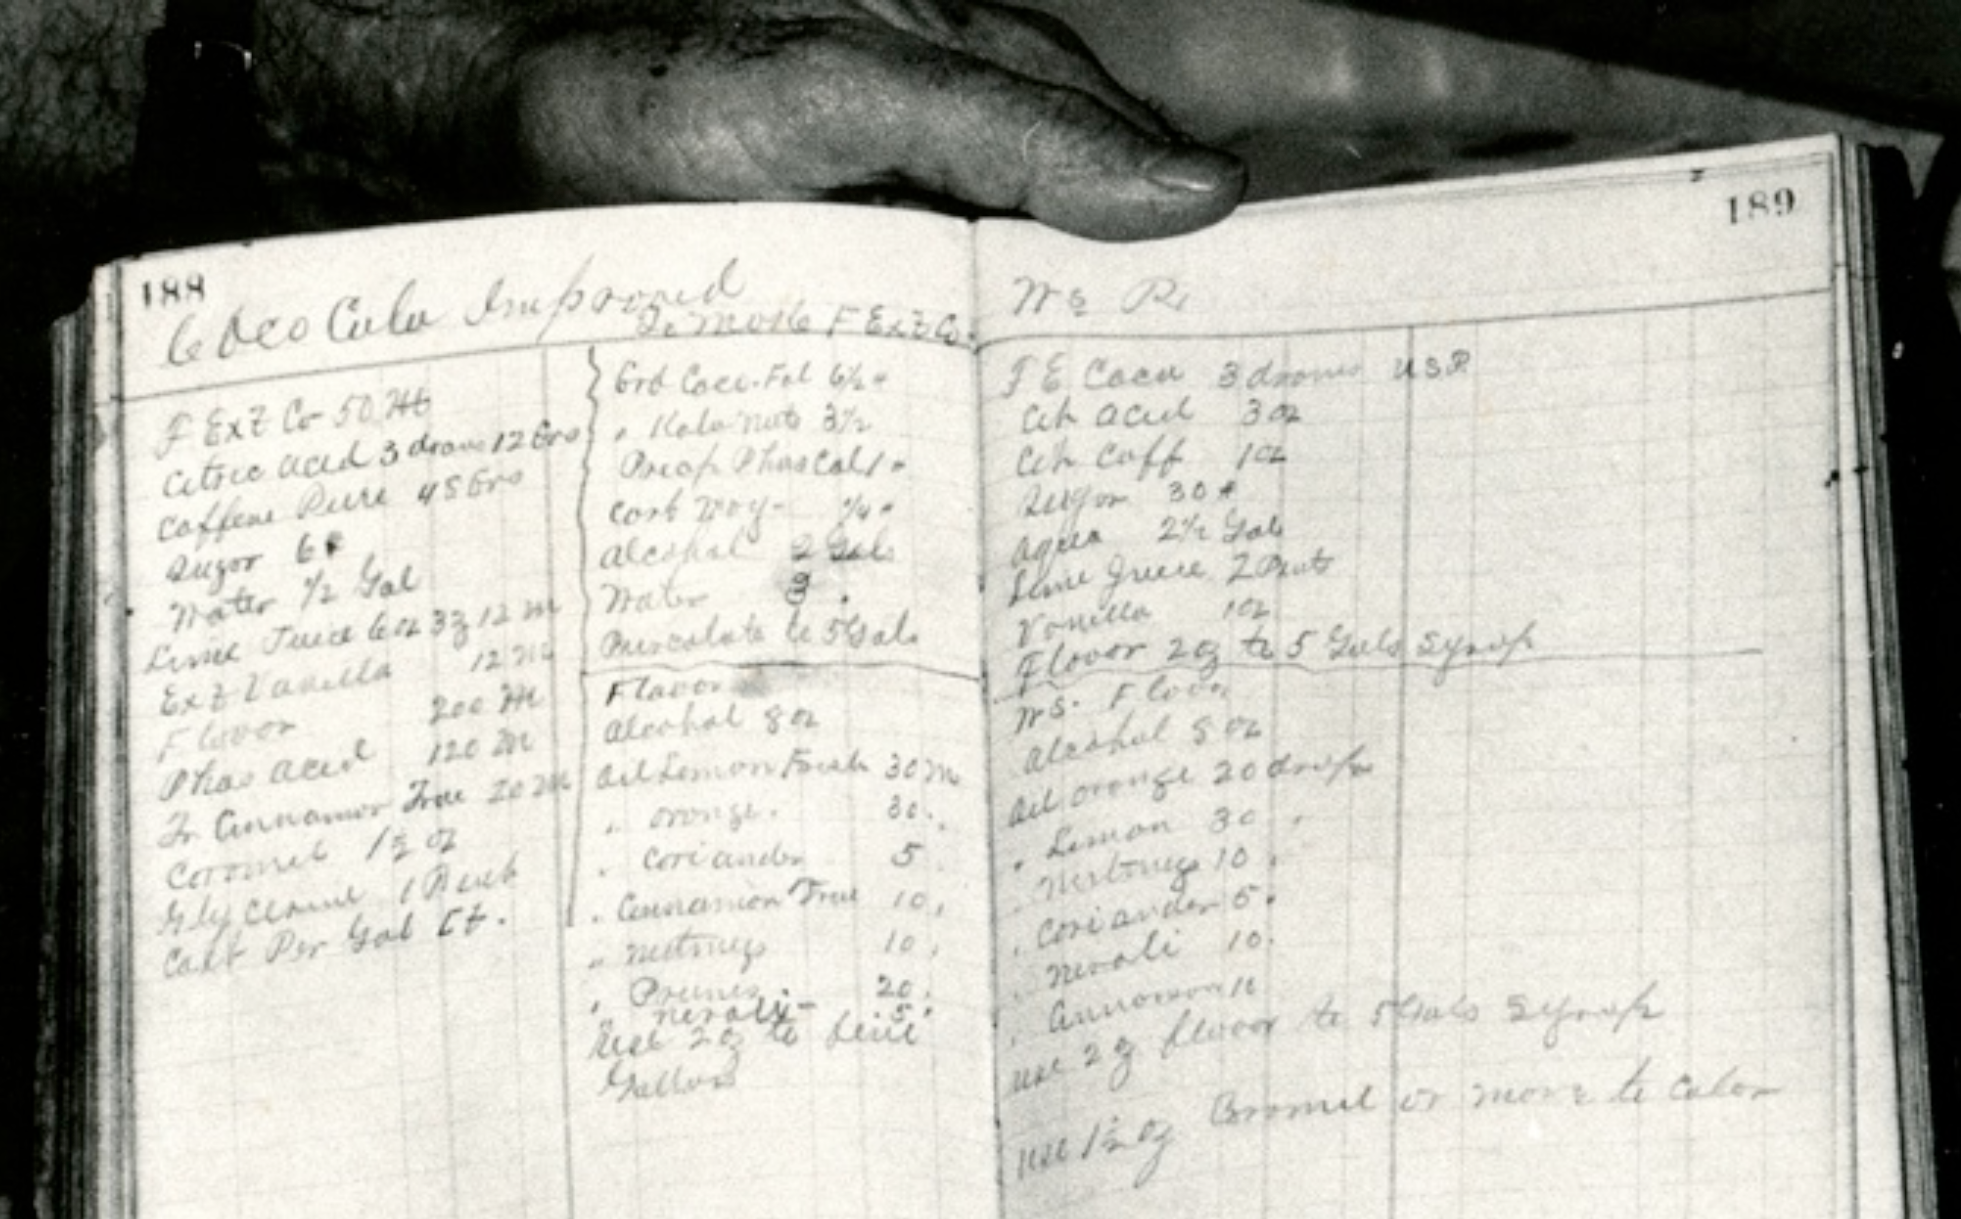 188
Coco Cola Improved
F Ext Co 50 M
Citric Acid 3 drams 12 Grs
Caffene Pure 45 Grs
Sugar 6#
Water 1/2 Gal
Lime Juice 6 oz 3ʒ 12 M
Ext Vanilla 12 M
Flavor 200 M
Phos Acid 120 M
Tr Cinnamon True 20 M
Caromel 1½ oz
Glycerine
Cost Per Gal
To Make F Ext Co.
Grd Coca. Fol 6½ "
" Kola Nuts 3½
Precip Phos Cal 1 "
Carb Mag - ¼ "
Alcohol 2 Gals
Water 3 "
Percolate to 5 Gals
Flavor
Alcohol 8 oz
Oil Lemon Fresh 30 M
" Orange. 30 "
" Coriander 5
" Cinnamon True 10 "
" Nutmegs 10 "
" Prunes. 20 "
" Neroly - 5 "
Use 2ʒ to
Gallons
189
F E Coca 3 drams USP
Cit Acid 3 oz
Cit Caff 1 oz
Sugar 30 #
Aqua 2½ Gal
Lime Juice 2 Pints
Vanilla 1 oz
Flavor 2ʒ to 5 Gals Syrup
Alcohol 8 oz
Oil Orange 20 drops
" Lemon 30 "
" Nutmegs 10 "
" Coriander 5 "
" Neroli 10 "
" Cinnamon
Use 2ʒ flavor to 5 Gals Syrup
use 1½ʒ or more to color